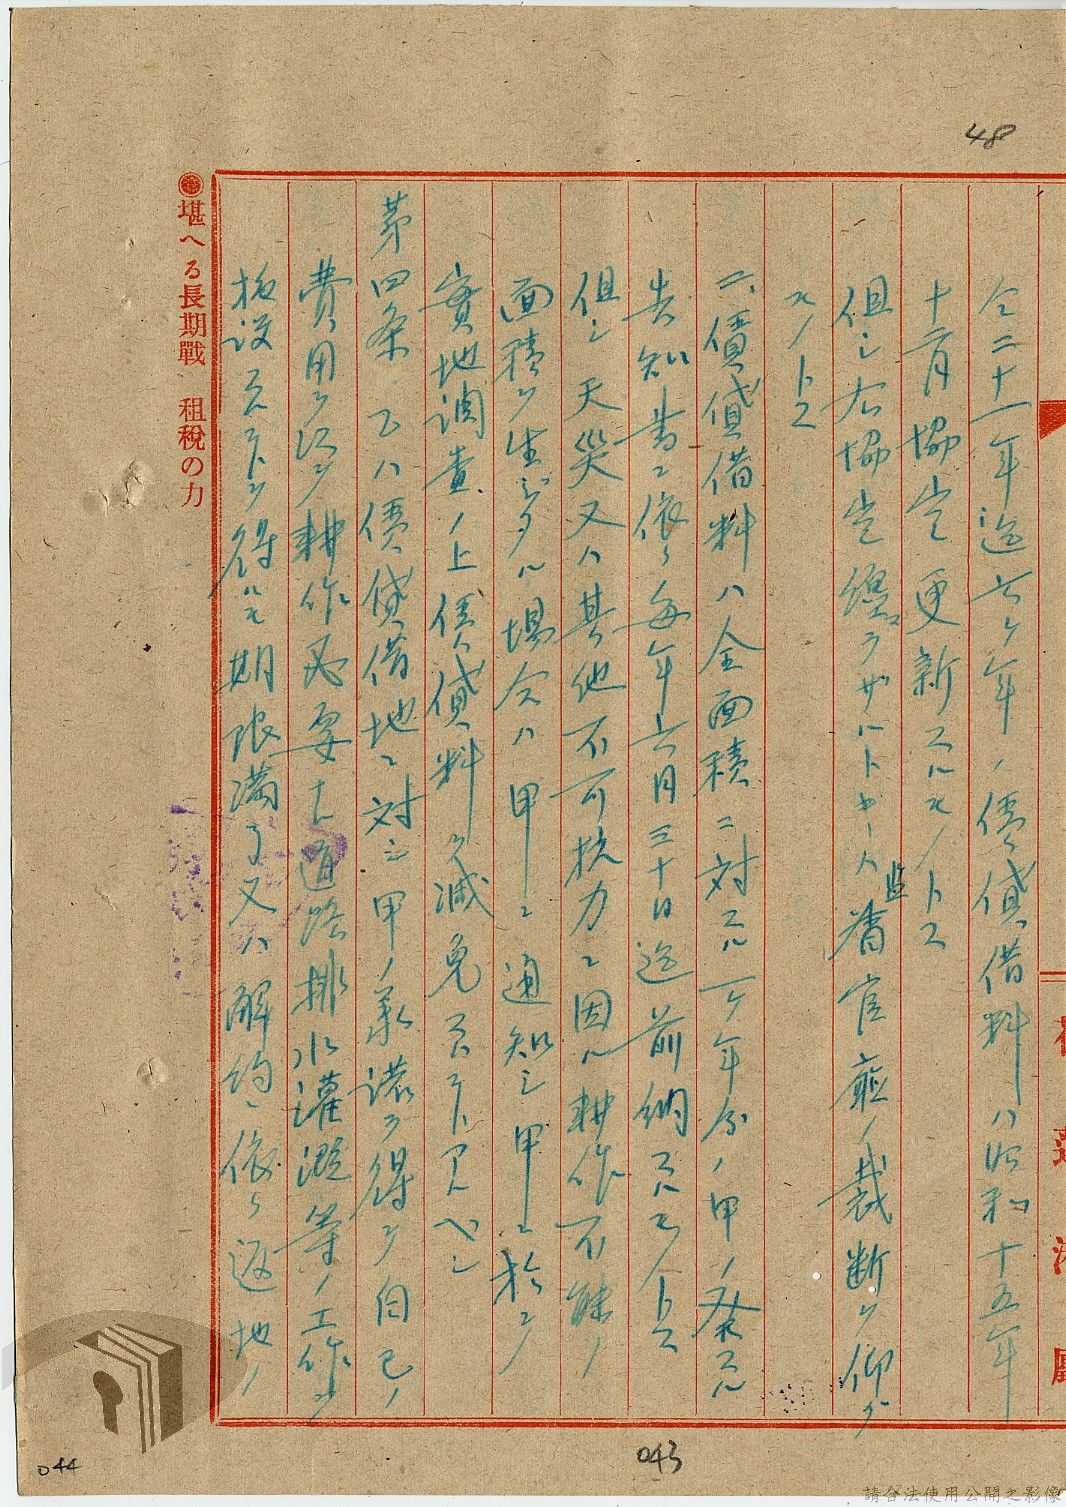 48
仝二十一年迄六ケ年ノ賃貸借料ハ昭和十五年
十二月協定更新スルモノトス
但シ右協定纒ラザルトキハ監督官廳ノ裁断ヲ仰グ
モノトス
二、賃貸借料ハ全面積ニ対スル一ケ年分ノ甲ノ発スル
告知書ニ依リ毎年六月三十日迄前納スルモノトス
但シ天災又ハ其他不可抗力ニ因ル耕作不能ノ
面積ヲ生ジタル場合ハ甲ニ通知シ甲ニ於テ
実地調査ノ上賃貸料ヲ減免スルコトアルベシ
第四条 乙ハ賃貸借地ニ対シ甲ノ承諾ヲ得テ自己ノ
費用ヲ以テ耕作必要ナル道路排水灌漑等ノ工作ヲ
施設スルコトヲ得ルモ期限満了又ハ解約ニ依リ返地ノ
堪へる長期戰 租税の力
043
044
請合法使用公開之影像